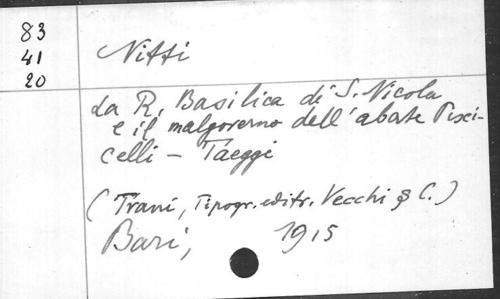 83
41
20
Nitti
La R. Basilica di S. Nicola
e il malgoverno dell'abate Pisci-
celli - Taeggi
(Trani, Tipogr. editr. Vecchi & C.)
Bari, 1915